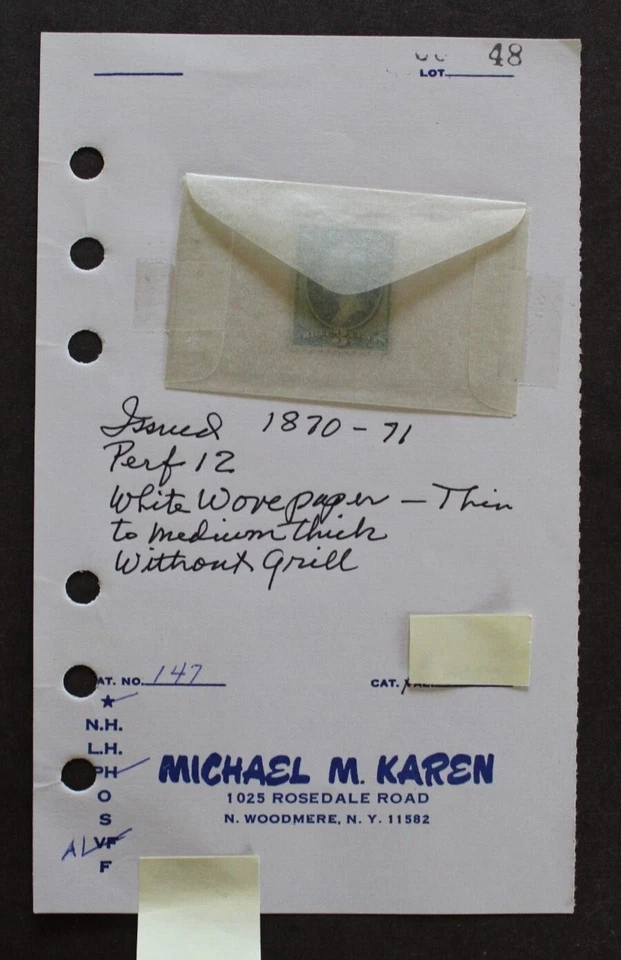 48
LOT
Issued 1870-71
Perf 12
White Wove paper – Thin
to medium thick
Without Grill
AT. NO. 147
CAT.
★
N.H.
L.H.
PH
MICHAEL M. KAREN
1025 ROSEDALE ROAD
O
N. WOODMERE, N. Y. 11582
S
VF
F